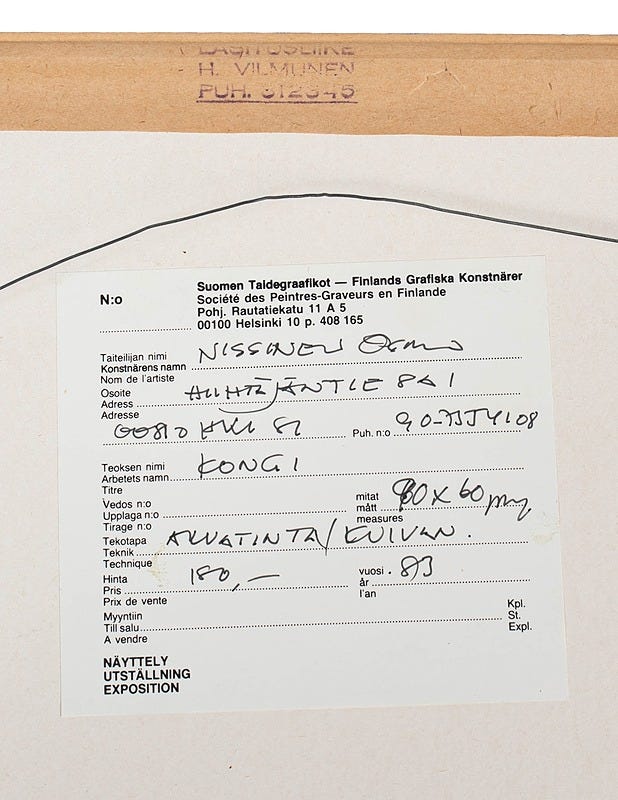 LASITUSLIIKE
H. VILMUNEN
PUH. 312345
N:o
Suomen Taidegraafikot — Finlands Grafiska Konstnärer
Société des Peintres-Graveurs en Finlande
Pohj. Rautatiekatu 11 A 5
00100 Helsinki 10 p. 408 165
Taiteilijan nimi NISSINEN Osmo
Konstnärens namn
Nom de l'artiste
Osoite HIIHTÄJÄNTIE 8 A 1
Adress
Adresse
00810 HKI 81 Puh. n:o
Teoksen nimi KONGI
Arbetets namn
Titre
Vedos n:o mitat 80x60
Upplaga n:o mått
Tirage n:o measures
Tekotapa AKVATINTA/KUIVAN.
Teknik
Technique
Hinta 180,— vuosi . 83
Pris år
Prix de vente l'an
Myyntiin Kpl.
Till salu St.
A vendre Expl.
NÄYTTELY
UTSTÄLLNING
EXPOSITION